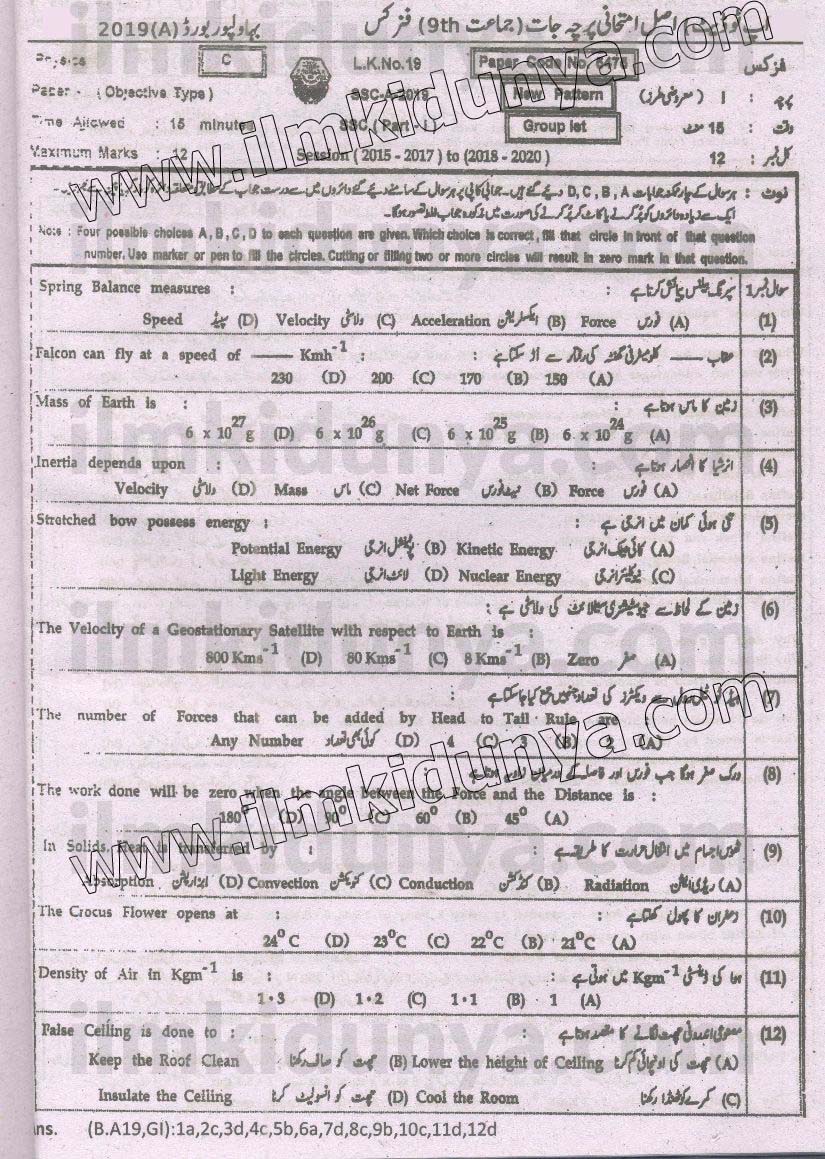 اصل امتحانی پرچہ جات (جماعت 9th) فزکس بہاولپور بورڈ 2019(A)
Physics C L.K.No.19 Paper Code No. 6475 فزکس
Paper - (Objective Type) SSC-A-2019 New Pattern پرچہ : I (معروضی طرز)
Time Allowed : 15 minutes SSC (Part - I) Group Ist وقت : 15 منٹ
Maximum Marks : 12 Session (2015 - 2017) to (2018 - 2020) کل نمبر : 12
نوٹ : ہر سوال کے چار ممکنہ جوابات D , C , B , A دیئے گئے ہیں۔ جوابی کاپی پر ہر سوال کے سامنے دیئے گئے دائروں میں سے درست جواب کے مطابق متعلقہ
ایک سے زیادہ دائروں کو پُر کرنے یا کاٹ کر پُر کرنے کی صورت میں مذکورہ جواب غلط تصور ہوگا۔
Note : Four possible choices A , B , C , D to each question are given. Which choice is correct , fill that circle in front of that question
number. Use marker or pen to fill the circles. Cutting or filling two or more circles will result in zero mark in that question.
Spring Balance measures : سپرنگ بیلنس پیمائش کرتا ہے : سوال نمبر 1
Speed سپیڈ (D) Velocity ولاسٹی (C) Acceleration ایکسلریشن (B) Force فورس (A) (1)
Falcon can fly at a speed of ——— Kmh⁻¹ : عقاب —— کلومیٹر فی گھنٹہ کی رفتار سے اُڑ سکتا ہے : (2)
230 (D) 200 (C) 170 (B) 150 (A)
Mass of Earth is : زمین کا ماس ہوتا ہے : (3)
6 x 10²⁷g (D) 6 x 10²⁶g (C) 6 x 10²⁵g (B) 6 x 10²⁴g (A)
Inertia depends upon : انرشیا کا انحصار ہوتا ہے : (4)
Velocity ولاسٹی (D) Mass ماس (C) Net Force نیٹ فورس (B) Force فورس (A)
Stretched bow possess energy : تنی ہوئی کمان میں انرجی ہے : (5)
Potential Energy پوٹینشل انرجی (B) Kinetic Energy کائی نیٹک انرجی (A)
Light Energy لائٹ انرجی (D) Nuclear Energy نیوکلیئر انرجی (C)
زمین کے لحاظ سے جیوسٹیشنری سیٹلائٹ کی ولاسٹی ہے : (6)
The Velocity of a Geostationary Satellite with respect to Earth is :
800 Kms⁻¹ (D) 80 Kms⁻¹ (C) 8 Kms⁻¹ (B) Zero صفر (A)
ہیڈ ٹو ٹیل رول سے ویکٹرز کی تعداد جنہیں جمع کیا جا سکتا ہے : (7)
The number of Forces that can be added by Head to Tail Rule are
Any Number کوئی بھی تعداد (D) 4 (C) 3 (B) 2 (A)
ورک صفر ہوگا جب فورس اور فاصلہ کے درمیان زاویہ ہوتا ہے : (8)
The work done will be zero when the angle between the Force and the Distance is :
180⁰ (D) 90⁰ (C) 60⁰ (B) 45⁰ (A)
In Solids, Heat is transferred by : ٹھوس اجسام میں انتقال حرارت کا طریقہ ہے : (9)
Absorption ابزارپشن (D) Convection کنویکشن (C) Conduction کنڈکشن (B) Radiation ریڈی ایشن (A)
The Crocus Flower opens at : زعفران کا پھول کھلتا ہے : (10)
24⁰C (D) 23⁰C (C) 22⁰C (B) 21⁰C (A)
Density of Air in Kgm⁻¹ is : ہوا کی ڈینسٹی Kgm⁻¹ میں ہوتی ہے : (11)
1·3 (D) 1·2 (C) 1·1 (B) 1 (A)
False Ceiling is done to : مصنوعی اندرونی چھت لگانے کا مقصد ہوتا ہے : (12)
Keep the Roof Clean چھت کو صاف رکھنا (B) Lower the height of Ceiling چھت کی اونچائی کم کرنا (A)
Insulate the Ceiling چھت کو انسولیٹ کرنا (D) Cool the Room کمرے کو ٹھنڈا رکھنا (C)
ns. (B.A19,GI):1a,2c,3d,4c,5b,6a,7d,8c,9b,10c,11d,12d
www.ilmkidunya.com
www.ilmkidunya.com
ilmkidunya.com
ilmkidunya.com
ilmkidunya.com
ilmkidunya.com